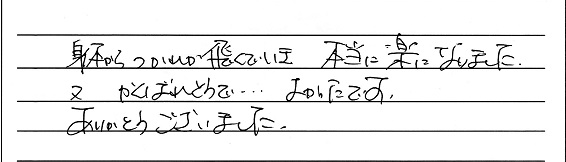 身体からつかれが飛んでいき 本当に楽になりました。
又 がんばれそうで… よかったです。
ありがとうございました。